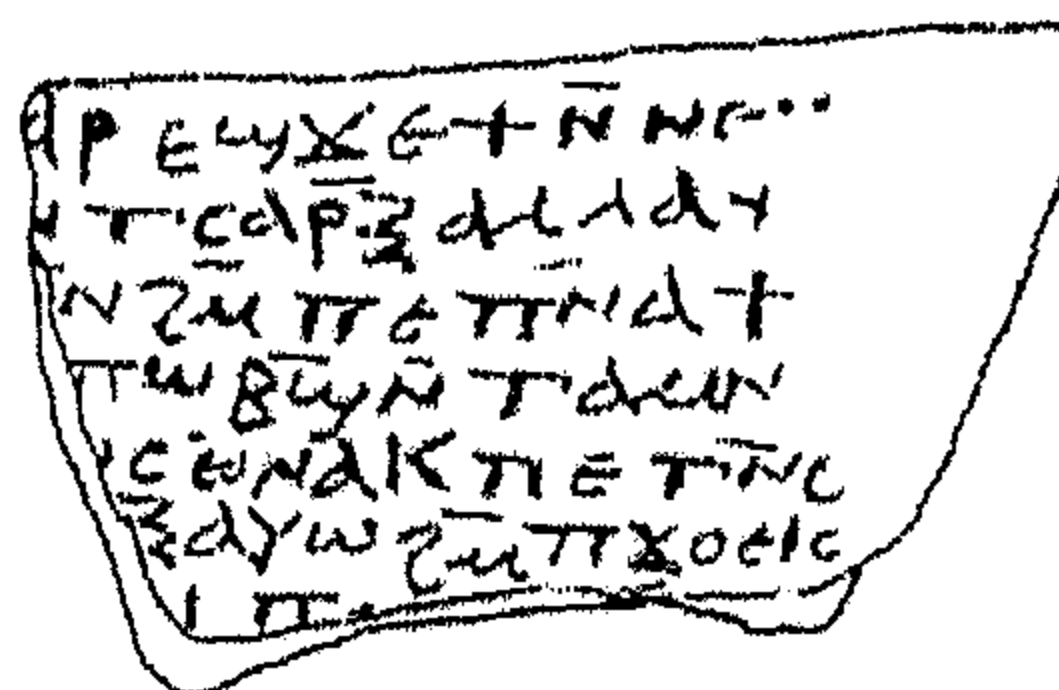 ⲁⲣⲉϣϫⲉϯⲛ̄ⲛⲉ··
ⲛⲧⲥⲁⲣ̄ⲝⲁⲗⲗⲁϯ
ⲛϩⲙⲡⲉⲡⲛ̄ⲁϯ
ⲡⲱⲃ̄ϣⲛ̄ⲧⲁⲙⲛ
ⲥⲱⲛⲁⲕⲡⲉⲧⲛ̄ⲥ
ⲝⲁⲩⲱϩⲙ̄ⲡϫⲟⲉⲓⲥ
ⲓⲡ